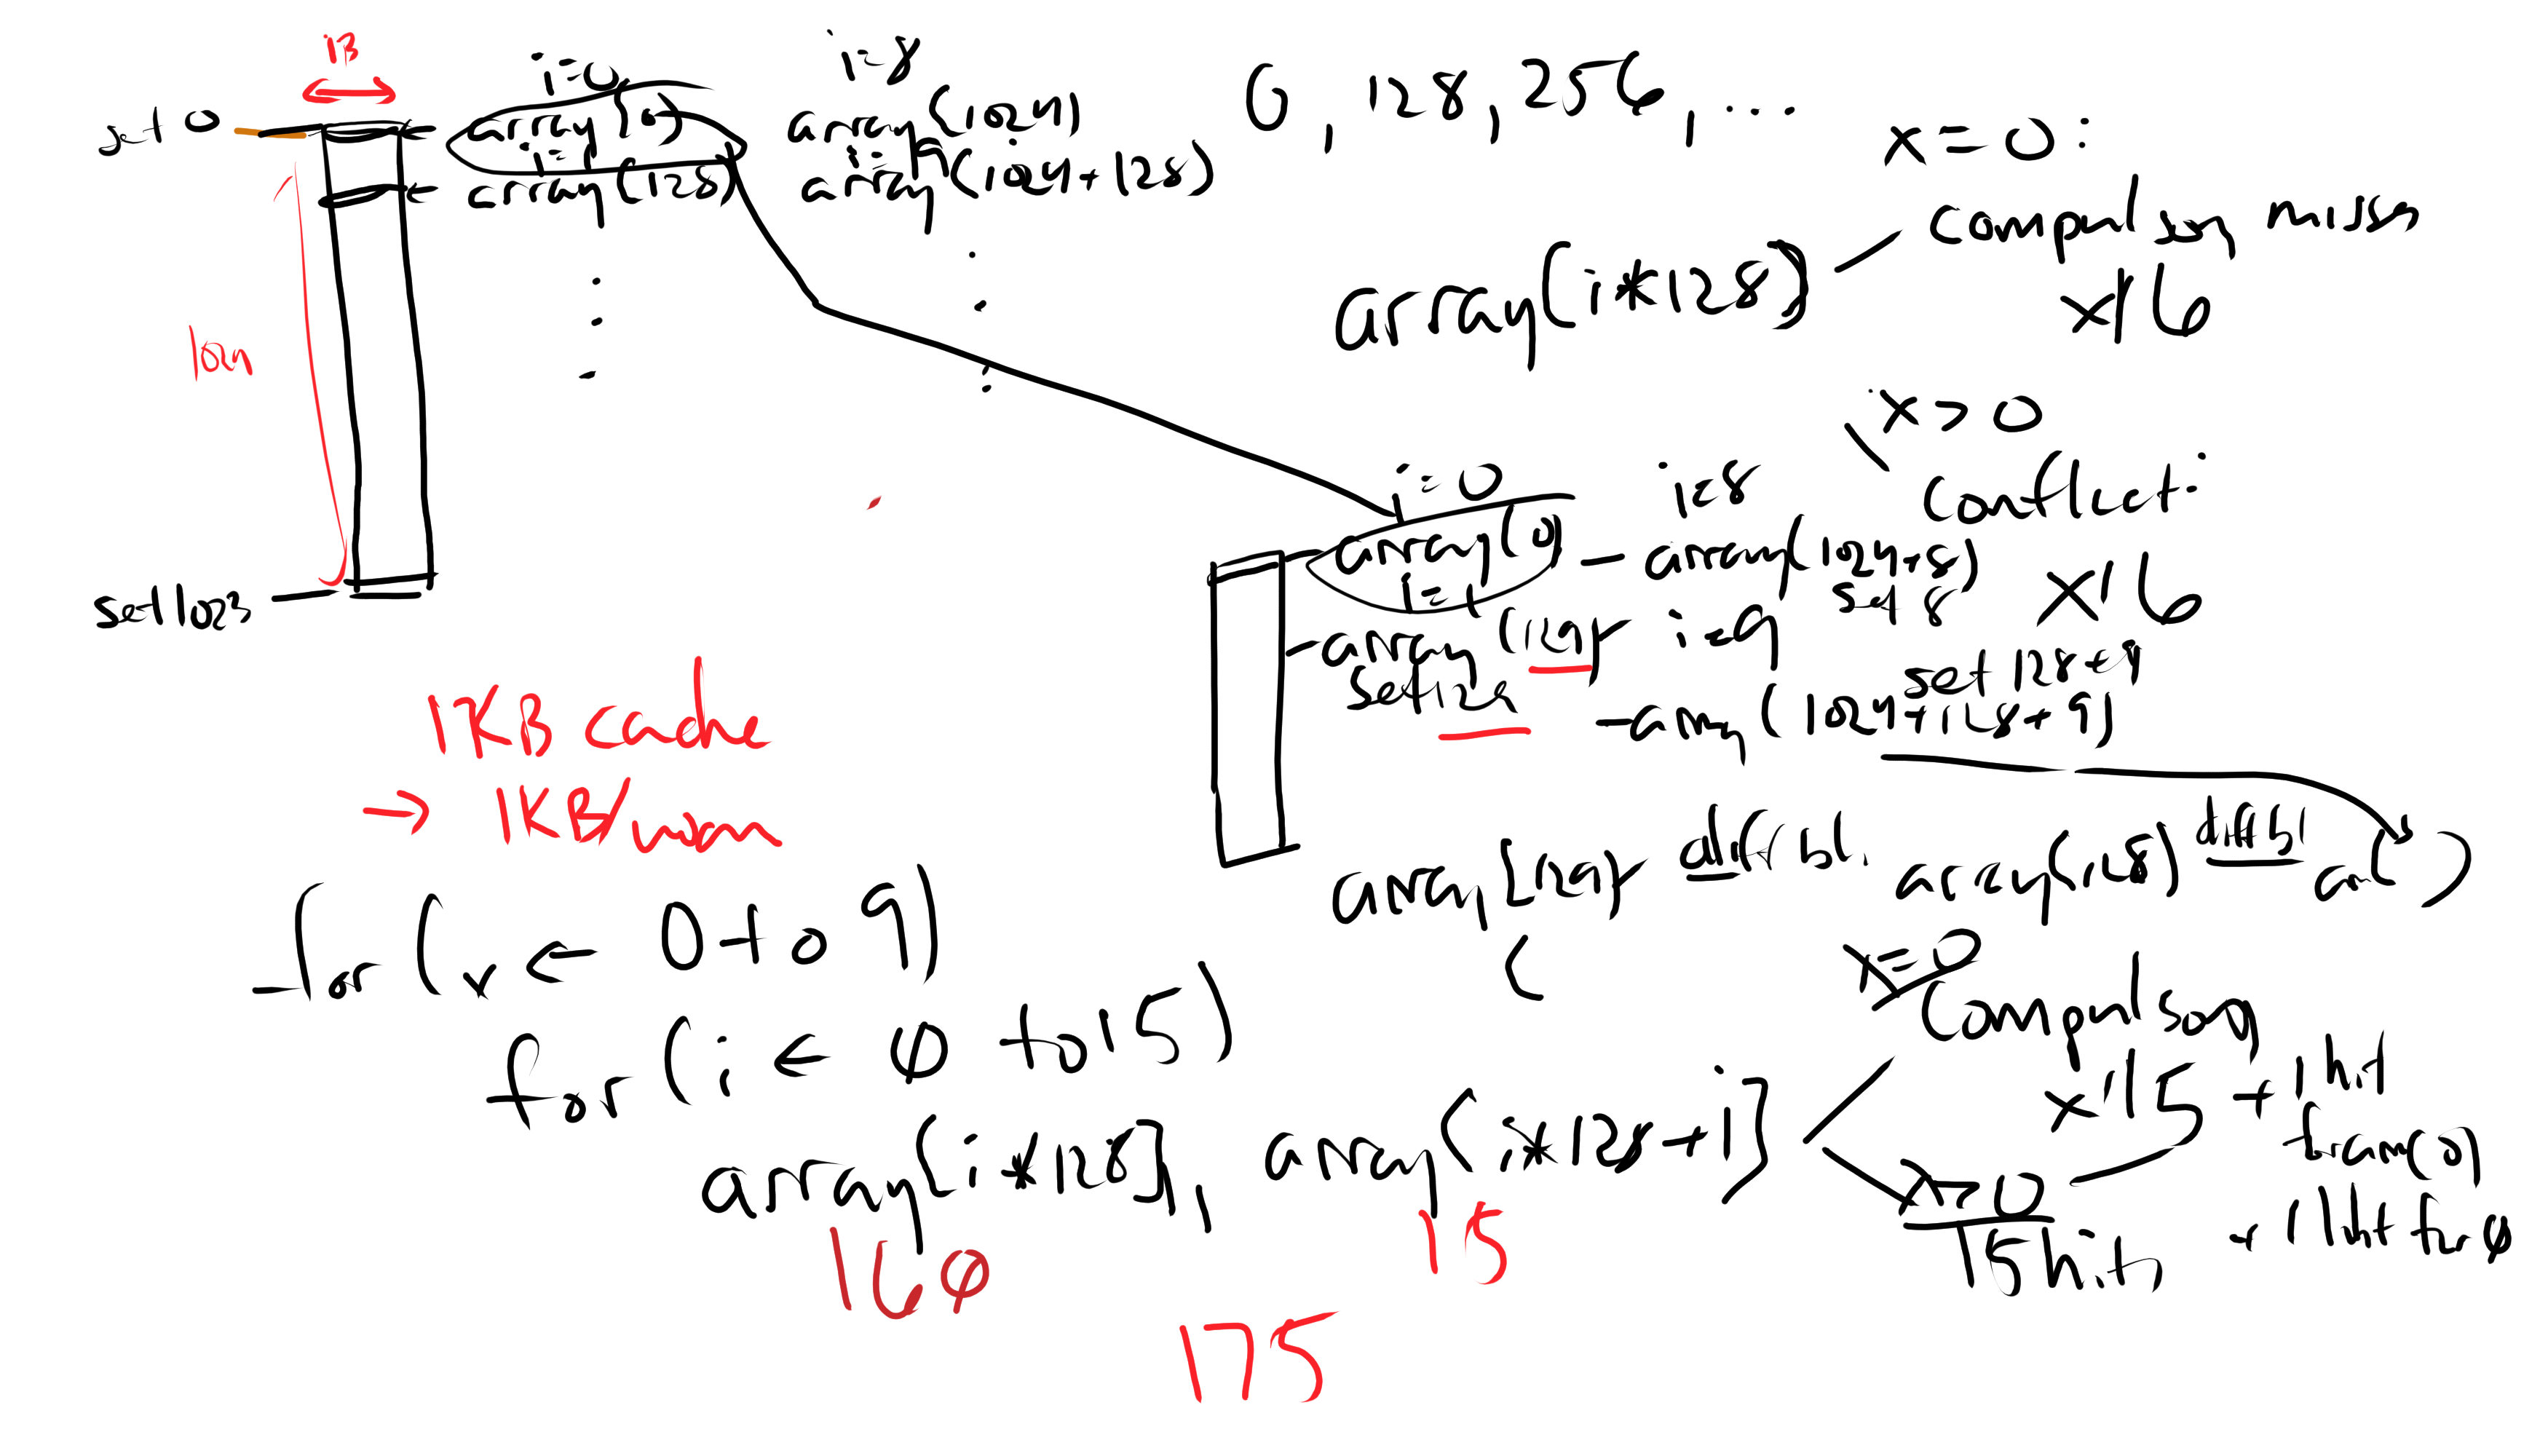 1B
set 0
i=0
array(0)
i=1
array(128)
i=8
array(1024)
i=9
array(1024+128)
0, 128, 256, ...
x=0:
compulsory misses
x16
array(i*128)
1024
set 1023
x>0
conflict:
x16
i=0
array(0)
i=1
array(129)
set 129
i=8
- array(1024+8)
set 8
i=9
set 128+9
- array(1024+128+9)
1KB cache
→ 1KB/way
array[129] diff bl. array(128) diff bl arr( )
(
for (x ← 0 to 9)
for (i ← 0 to 15)
array[i*128], array[i*128+i]
160
15
175
x=0
Compulsory
x15 + 1 hit
for arr(0)
x>0
15 hits + 1 hit for 0